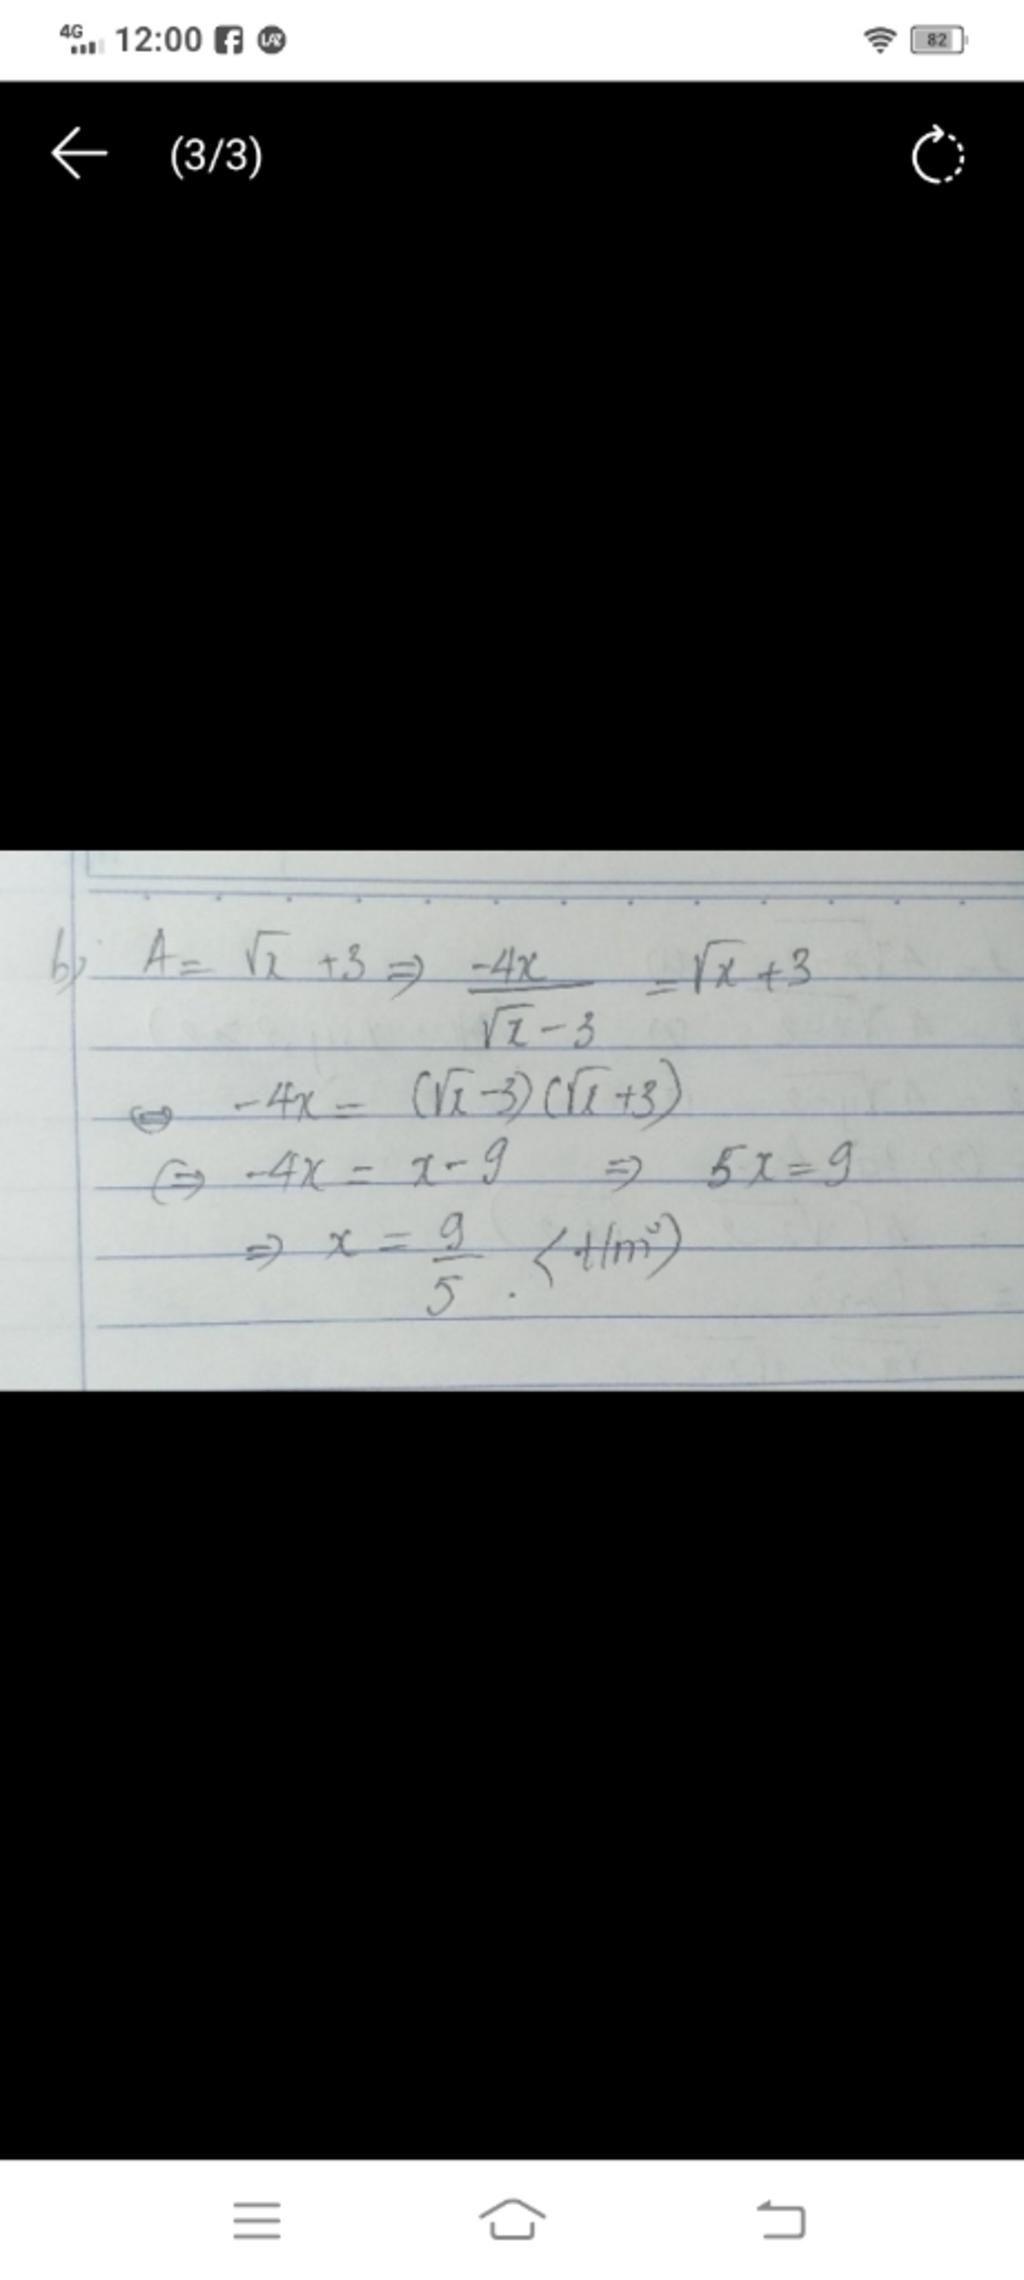 4G 12:00 82
(3/3)
b) A = √x + 3 ⇒ -4x / √x - 3 = √x + 3
⇔ -4x = (√x - 3)(√x + 3)
⇔ -4x = x - 9 ⇒ 5x = 9
⇒ x = 9/5 . (t/m)